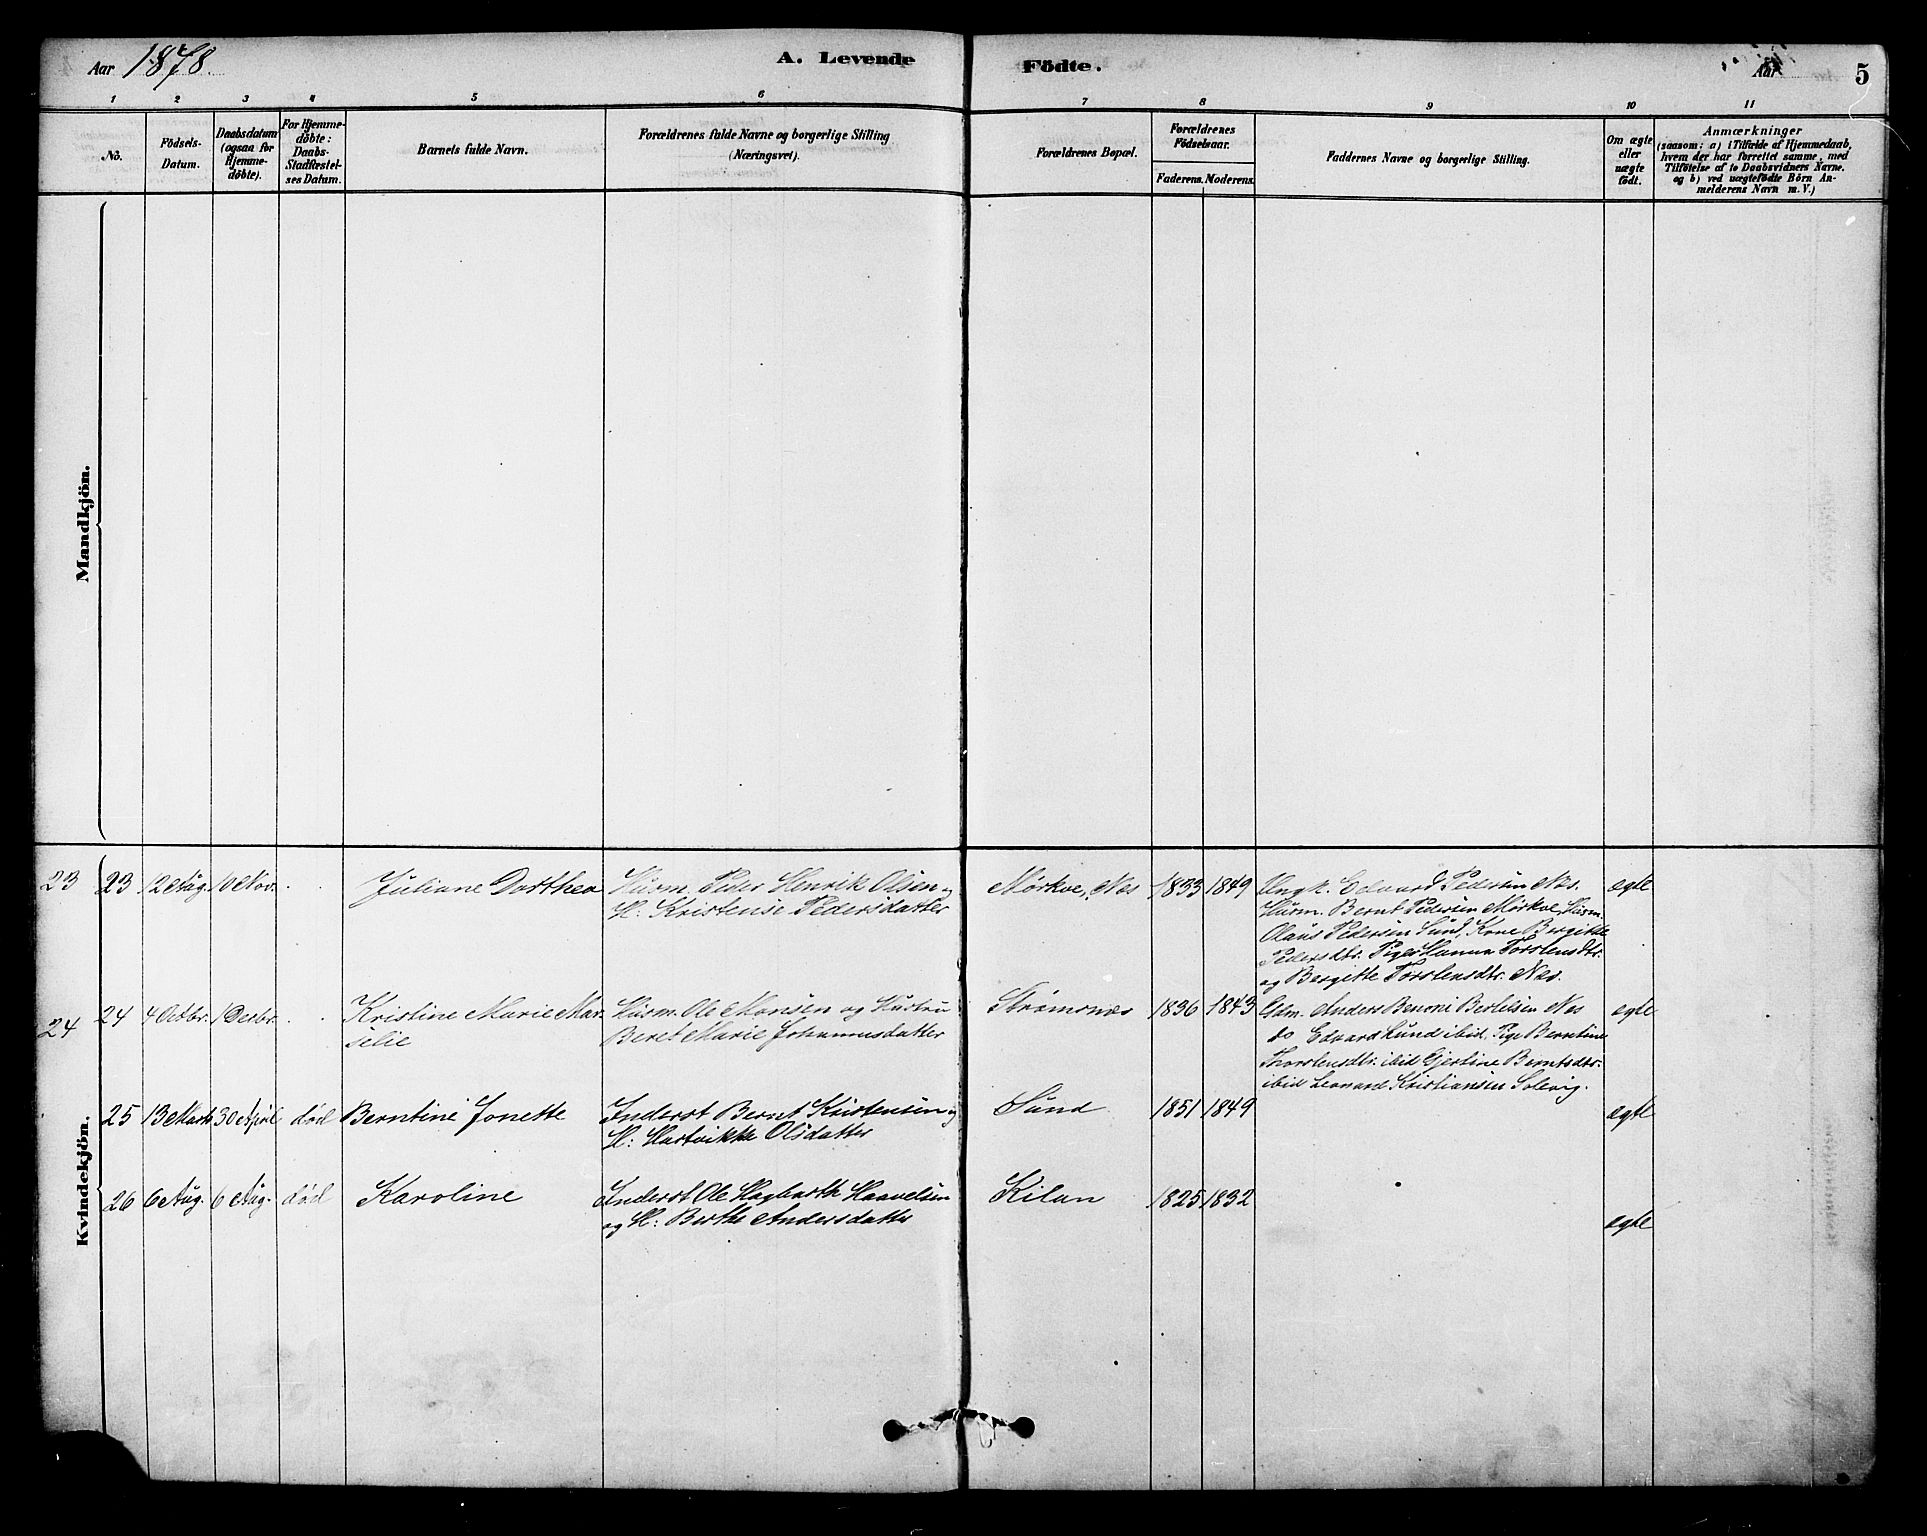 Aar 1878.
A. Levende Födte.
Aar
5
1 2 3 4 5 6 7 8 9 10 11
No.
Födsels-
Datum.
Daabsdatum
(ogsaa for
Hjemme-
döbte).
For Hjemme-
döbte:
Daabs-
Stadfæstel-
ses Datum.
Barnets fulde Navn.
Forældrenes fulde Navne og borgerlige Stilling
(Næringsvei).
Forældrenes Bopæl.
Forældrenes
Födselsaar.
Faderens. Moderens.
Faddernes Navne og borgerlige Stilling.
Om ægte
eller
uægte
födt.
Anmærkninger
(saasom: a) i Tilfælde af Hjemmedaab,
hvem der har forrettet samme, med
Tilföielse af to Daabsvidners Navne.
og b) ved uægtefödte Börn An-
melderens Navn m. V.)
Mandkjön.
Kvindekjön.
23 23 12 Aug. 10 Nov. . . Juliane Dorthea
Husm. Peder Henrik Olsen og
H: Kristense Pedersdatter
Mørkve, Nes 1833 1849
Ungk. Edvard Pedersen Nes.
Husm. Bernt Pedersen Mørkve, Husm.
Olaus Pedersen Sund, Kone Bergitte
Pedersdtr. Piger Hanna Torstensdtr.
og Bergitte Torstensdtr. Nes.
egte
24 24 4 Octbr. 1 Decbr. . . Kristine Marie Mar-
selie
Husm. Ole Monsen og Hustru
Beret Marie Johannesdatter
Strømsnes 1836 1843
Gdm. Anders Benoni Bertelsen Nes
do Edvard Lund ibid, Pige Berntine
Thorstensdtr. ibid Gjertine Berntsdtr.
ibid Leonard Kristiansen Solevig.
egte
25 13 Marts 30 April død Berntine Jonette
Inderst Bernt Kristensen og
H: Hartvikke Olsdatter
Sund 1851 1849
egte
26 6 Aug. 6 Aug. død Karoline
Inderst Ole Hagbarth Haavelsen
og H: Berthe Andersdatter
Kilan 1825 1832
egte